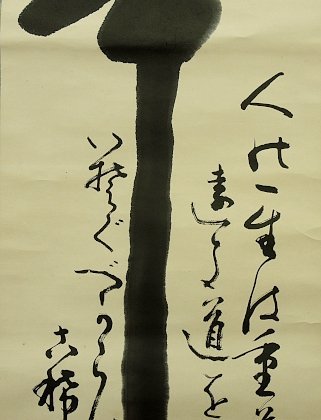 人の一生は重
遠き道を
いそぐべから
古稀